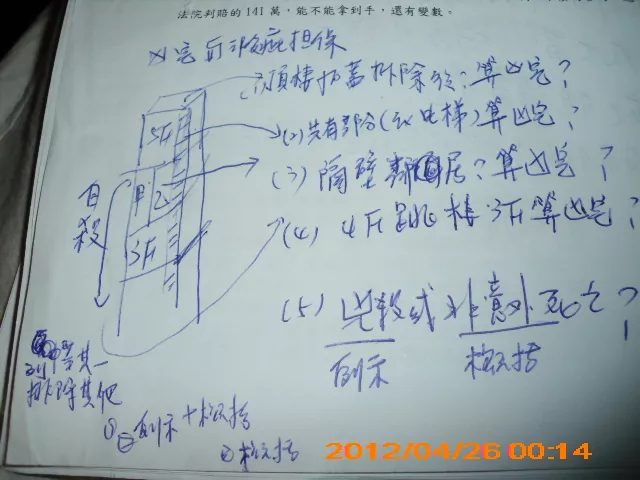 法院判賠的 141 萬，能不能拿到手，還有變數。
凶宅可瑕疵担保
頂楼加蓋拆除後？算凶宅？
(2)共有部分(如电梯)算凶宅？
(3)隔壁鄰居？算凶宅？
(4) 4F跳楼 3F算凶宅？
(5)兇殺或非意外死亡？
例示 概括
5F
甲 乙
3F
自殺
列举其一
排除其他
① 例示+概括
② 概括
2012/04/26 00:14